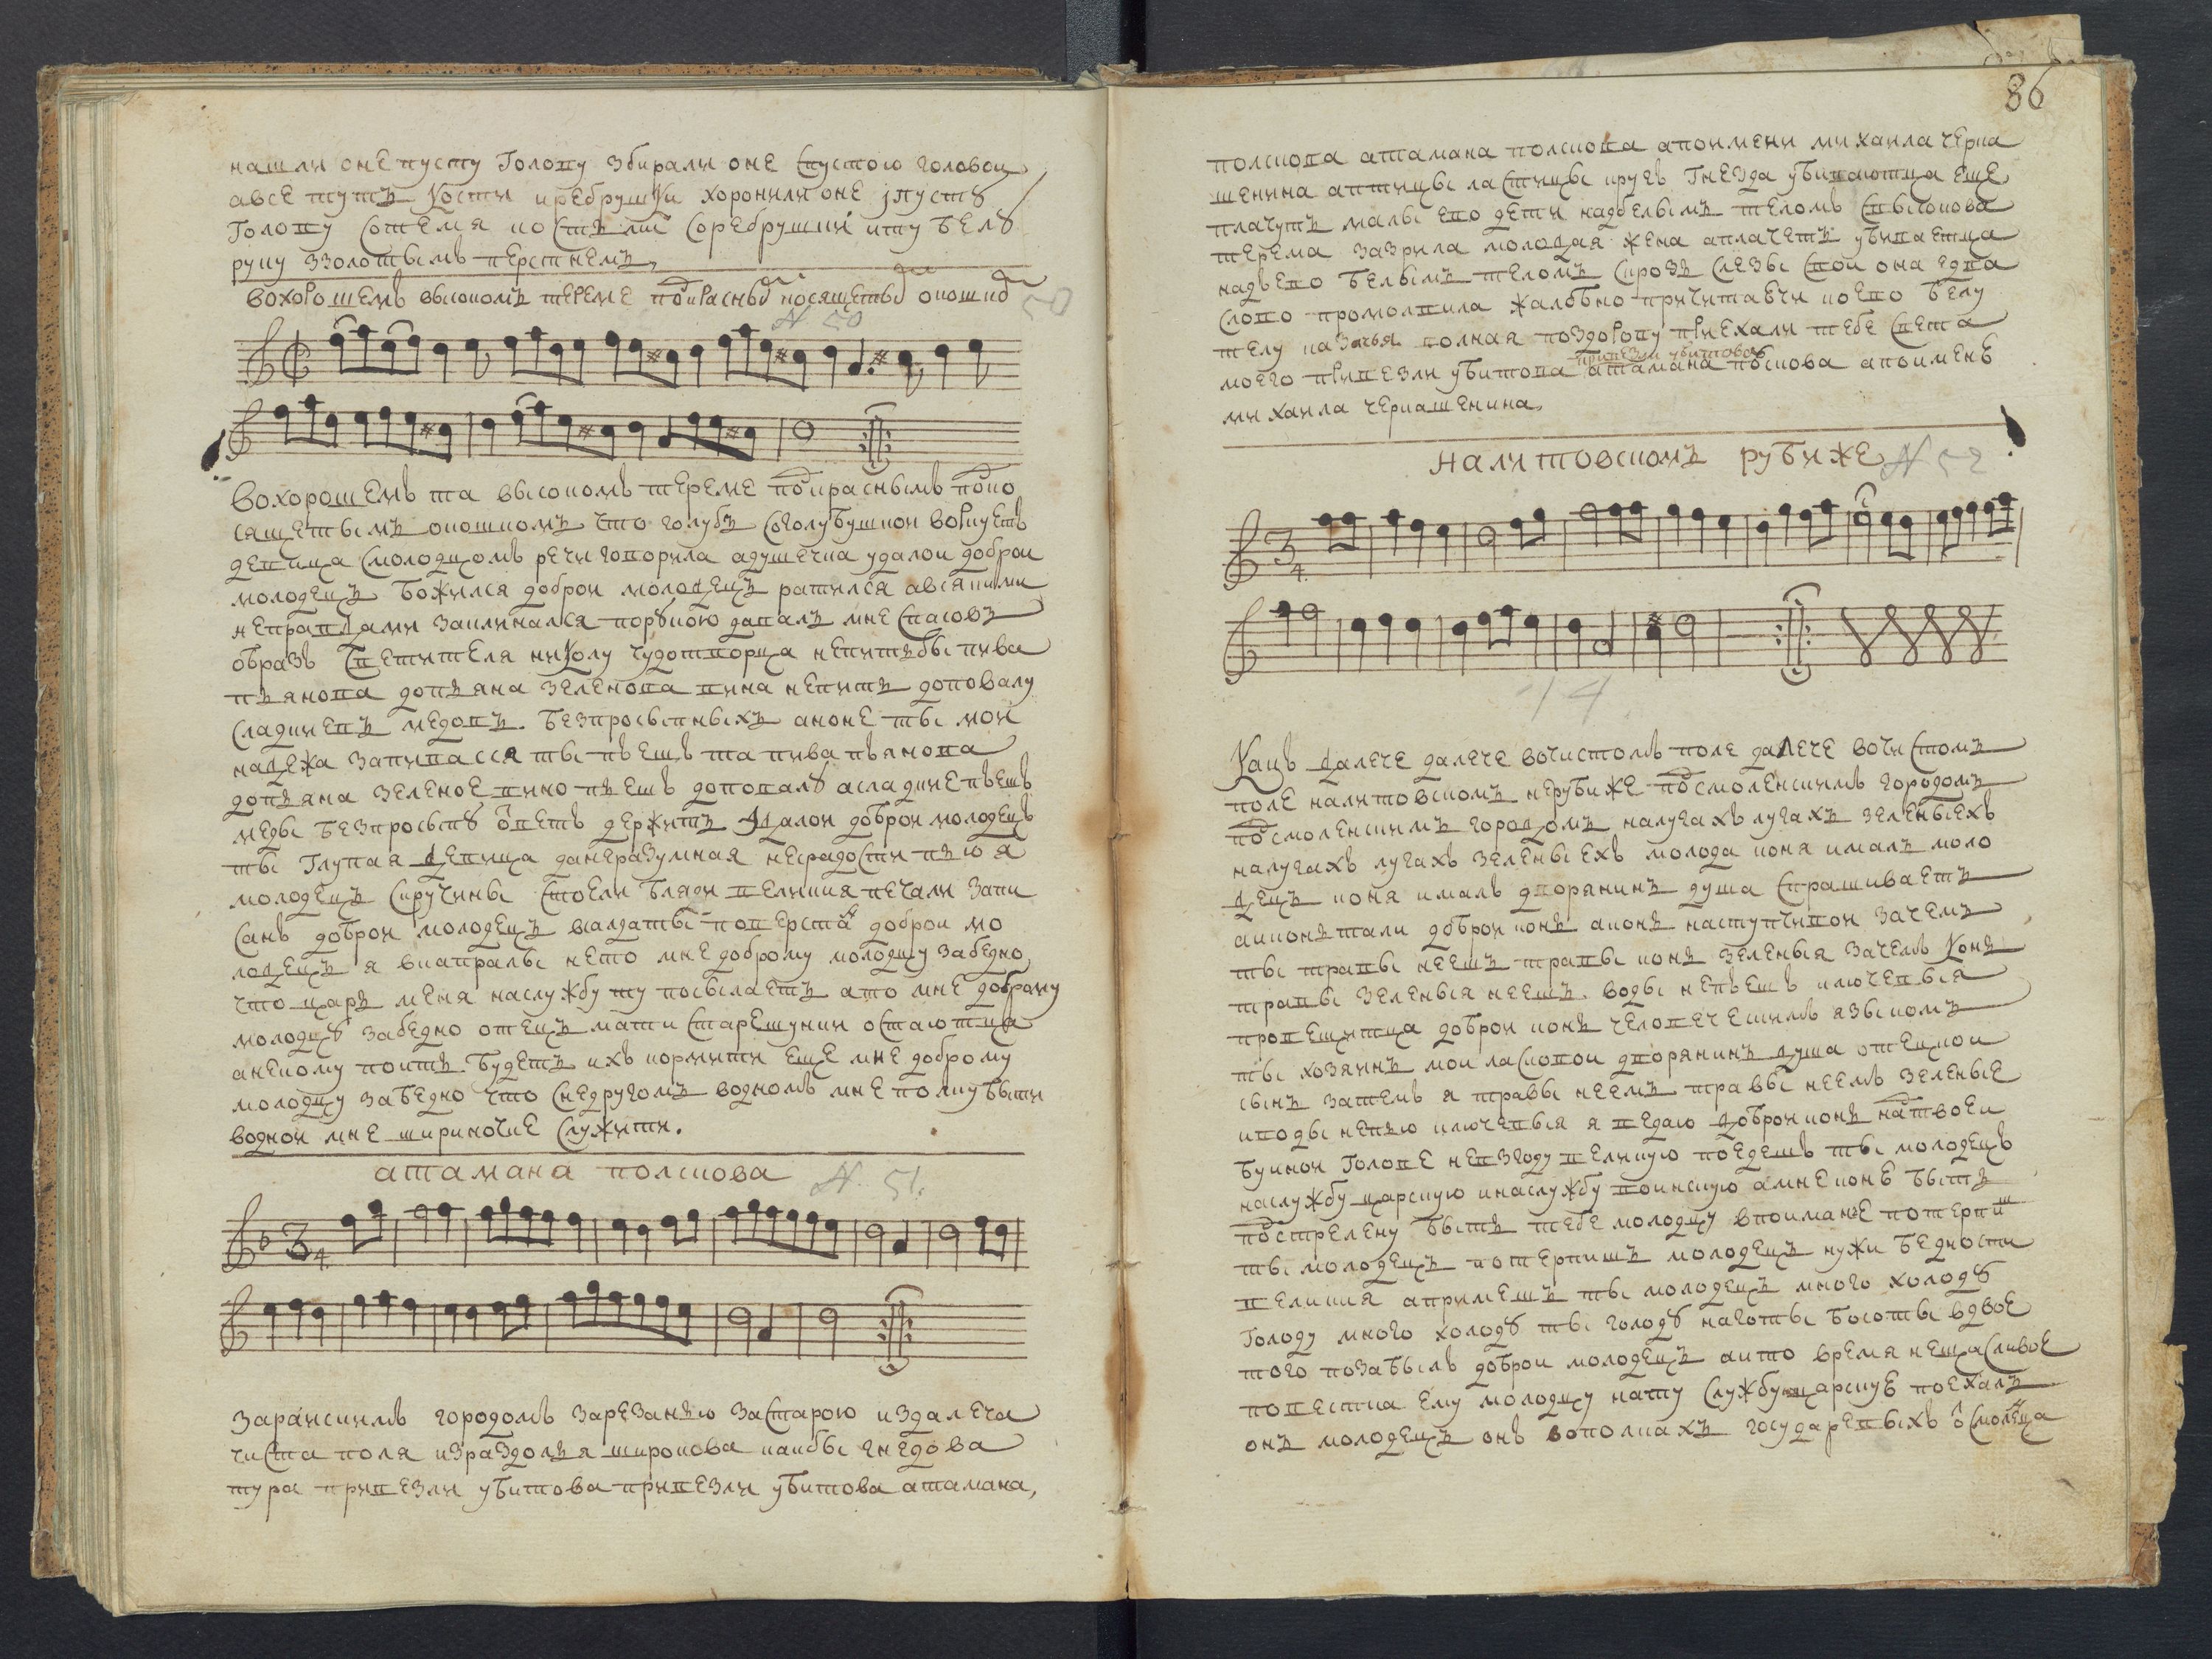 нашли оне пусту голову збирали оне спустою головои
авсе тутъ кости иребрушки хоронили оне іпусту
голову сотемя костьми соребрушки иту белу
руку ззолотымъ перстнемъ
вохорошемъ высокомъ тереме под красны косящеты окошко
N 50
50
Вохорошемъ та высокомъ тереме под краснымъ под ко
сящетымъ окошкомъ что голубь соголубушкои воркуетъ
девица смолодцомъ речи говорила адушечка удалои доброи
молодецъ божился доброи молодецъ ратился авсякими
неправдами заклинался порукою давалъ мне спасовъ
образъ светителя николу чудотворца непить бы пива
пьянова допьяна зеленова вина непить доповалу
сладкиевъ медовъ безпросыпныхъ аноне ты мои
надежа запиваесся ты пьешъ та пива пьянова
допьяна зеленое вино пьешъ доповалу асладкие пьешъ
меды безпросыпу ответъ держитъ удалои доброи молодецъ
ты глупая девица данеразумная несрадости пью я
молодецъ скручины стоели бляди великия печали запи
санъ доброи молодецъ валдаты поверстан доброи мо
лодецъ я вкапралы нето мне доброму молодцу забедно
что царь меня наслужбу ту посылаетъ ато мне доброму
молодцу забедно отецъ мати старешунки остаютца
анекому поить будетъ ихъ кормити еще мне доброму
молодцу забедно что снедругомъ водномъ мне полку быти
воднои мне шириночке служити.
атамана полскова N 51.
Зараискимъ городомъ зарезанью застарою издалеча
чиста поля израздолья широкова какбы гнедова
тура привезли убитова привезли убитова атамана,
86
полскова атамана полскова апоимени михаила черка
шенина аптицы ластицы кругъ гнезда убиваютца еще
плачутъ малы ево дети надбелымъ теломъ свысокова
терема зазрила молодая жена аплачетъ убиваетца
надъево белымъ теломъ скрозь слезы свои она едва
слово промолвила жалобно причитаючи коево белу
телу казачья волная поздорову приехали тебе света
привезли убитова
моего привезли убитова атамана полскова апоимень
михаила черкашенина,
налитовскомъ рубиже N 52
14
Какъ далече далече вочистомъ поле далече вочистомъ
поле налитовскомъ нерубиже под смоленскимъ городомъ
под смоленскимъ городомъ налугахъ лугахъ зеленыехъ
налугахъ лугахъ зеленыехъ молода коня ималъ моло
децъ коня ималъ дворянинъ душа спрашиваетъ
аиконь тали доброи конь аконь наступчивои зачемъ
ты травы неешъ травы конь зеленыя зачемъ конь
травы зеленыя неешъ воды непьешъ ключевыя
провещитца доброи конь человечешимъ языкомъ
ты хозяинъ мои ласковои дворянинъ душа отецкои
сынъ затемъ я травы неемъ травы неемъ зеленые
иводы непью ключевыя я ведаю доброи конь над твоеи
буинои голове невзгоду великую поедешъ ты молодецъ
наслужбу царскую инаслужбу воинскую амне коню быть
под стрелену быть тебе молодцу впоимане потерпиш
ты молодецъ потерпишъ молодецъ нужи бедности
великия апримешъ ты молодецъ много холоду
голоду много холоду ты голоду наготы босоты вдвое
того позабылъ доброи молодецъ аито время нещасливое
повестка ему молодцу нату службу царскую поехалъ
онъ молодецъ онъ вополкахъ государевыхъ от смоленца